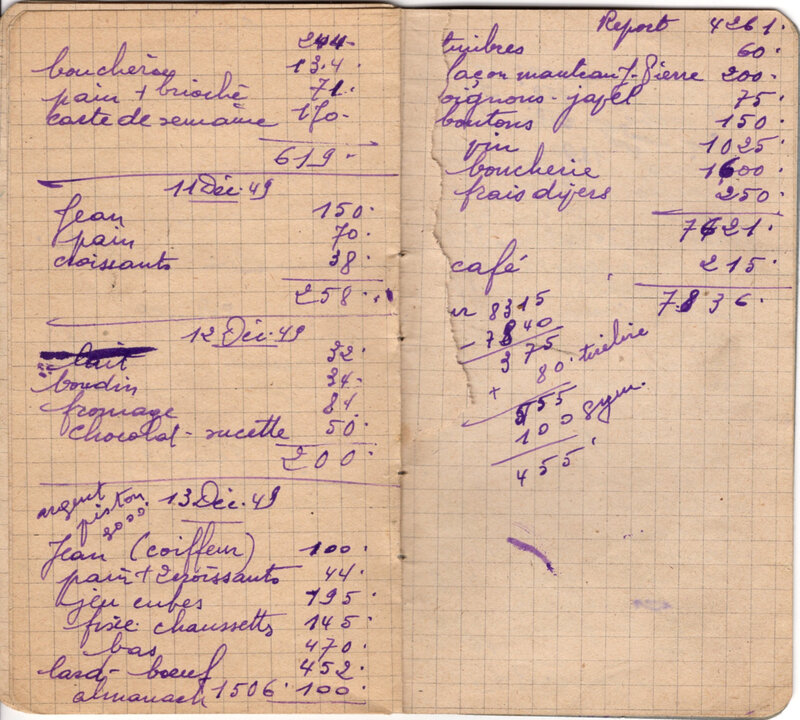 244-
boucherie 134.
pain + brioche 71.
carte de semaine 170-
619-
11 Déc. 49
Jean 150.
pain 70.
croissants 38.
258.
12 Déc. 49
lait 32.
boudin 34-
fromage 84.
chocolat - sucette 50.
200.
argent
piston 13 Déc. 49
3000.
Jean (coiffeur) 100.
pain + 2 croissants 44.
jeu cubes 195.
fixe chaussetts 145.
bas 470.
lard - bœuf 452.
almanach 1506. 100.
Report 4261.
timbres 60.
façon manteau J-Pierre 200.
oignons - javel 75.
boutons 150.
vin 1025.
boucherie 1600.
frais divers 250.
7621.
café 215.
7836.
8315
- 7840
375
+ 80. tirelire
555
100 gym.
455.